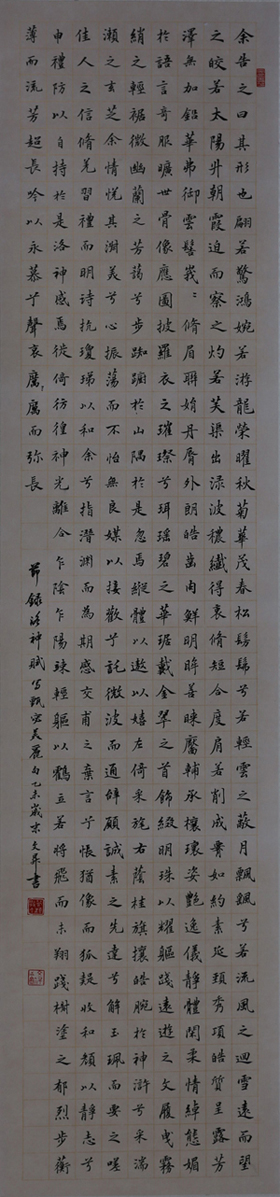 余告之曰其形也翩若驚鴻婉若游龍榮曜秋菊華茂春松髣髴兮若輕雲之蔽月飄飄兮若流風之迴雪遠而望
之皎若太陽升朝霞迫而察之灼若芙蕖出淥波穠纖得衷脩短合度肩若削成腰如約素延頸秀項皓質呈露芳
澤無加鉛華弗御雲髻峩〻脩眉聯娟丹脣外朗皓齒內鮮明眸善睞靨輔承權瓌姿艷逸儀靜體閑柔情綽態媚
於語言奇服曠世骨像應圖披羅衣之璀璨兮珥瑤碧之華琚戴金翠之首飾綴明珠以耀軀踐遠遊之文履曳霧
綃之輕裾微幽蘭之芳藹兮步踟躕於山隅於是忽焉縱體以遨以嬉左倚采旄右蔭桂旗攘皓腕於神滸兮采湍
瀨之玄芝余情悅其淑美兮心振蕩而不怡無良媒以接歡兮託微波而通辭願誠素之先達兮解玉珮而要之嗟
佳人之信脩羌習禮而明詩抗瓊珶以和余兮指潛淵而為期感交甫之棄言兮悵猶像而狐疑收和顏以靜志兮
申禮防以自持於是洛神感焉徙倚彷徨神光離合乍陰乍陽竦輕軀以鶴立若將飛而未翔踐椒塗之郁烈步蘅
薄而流芳超長吟以永慕兮聲哀厲厲而彌長
節錄洛神賦寫甄宓美麗句乙未歲末文昇書